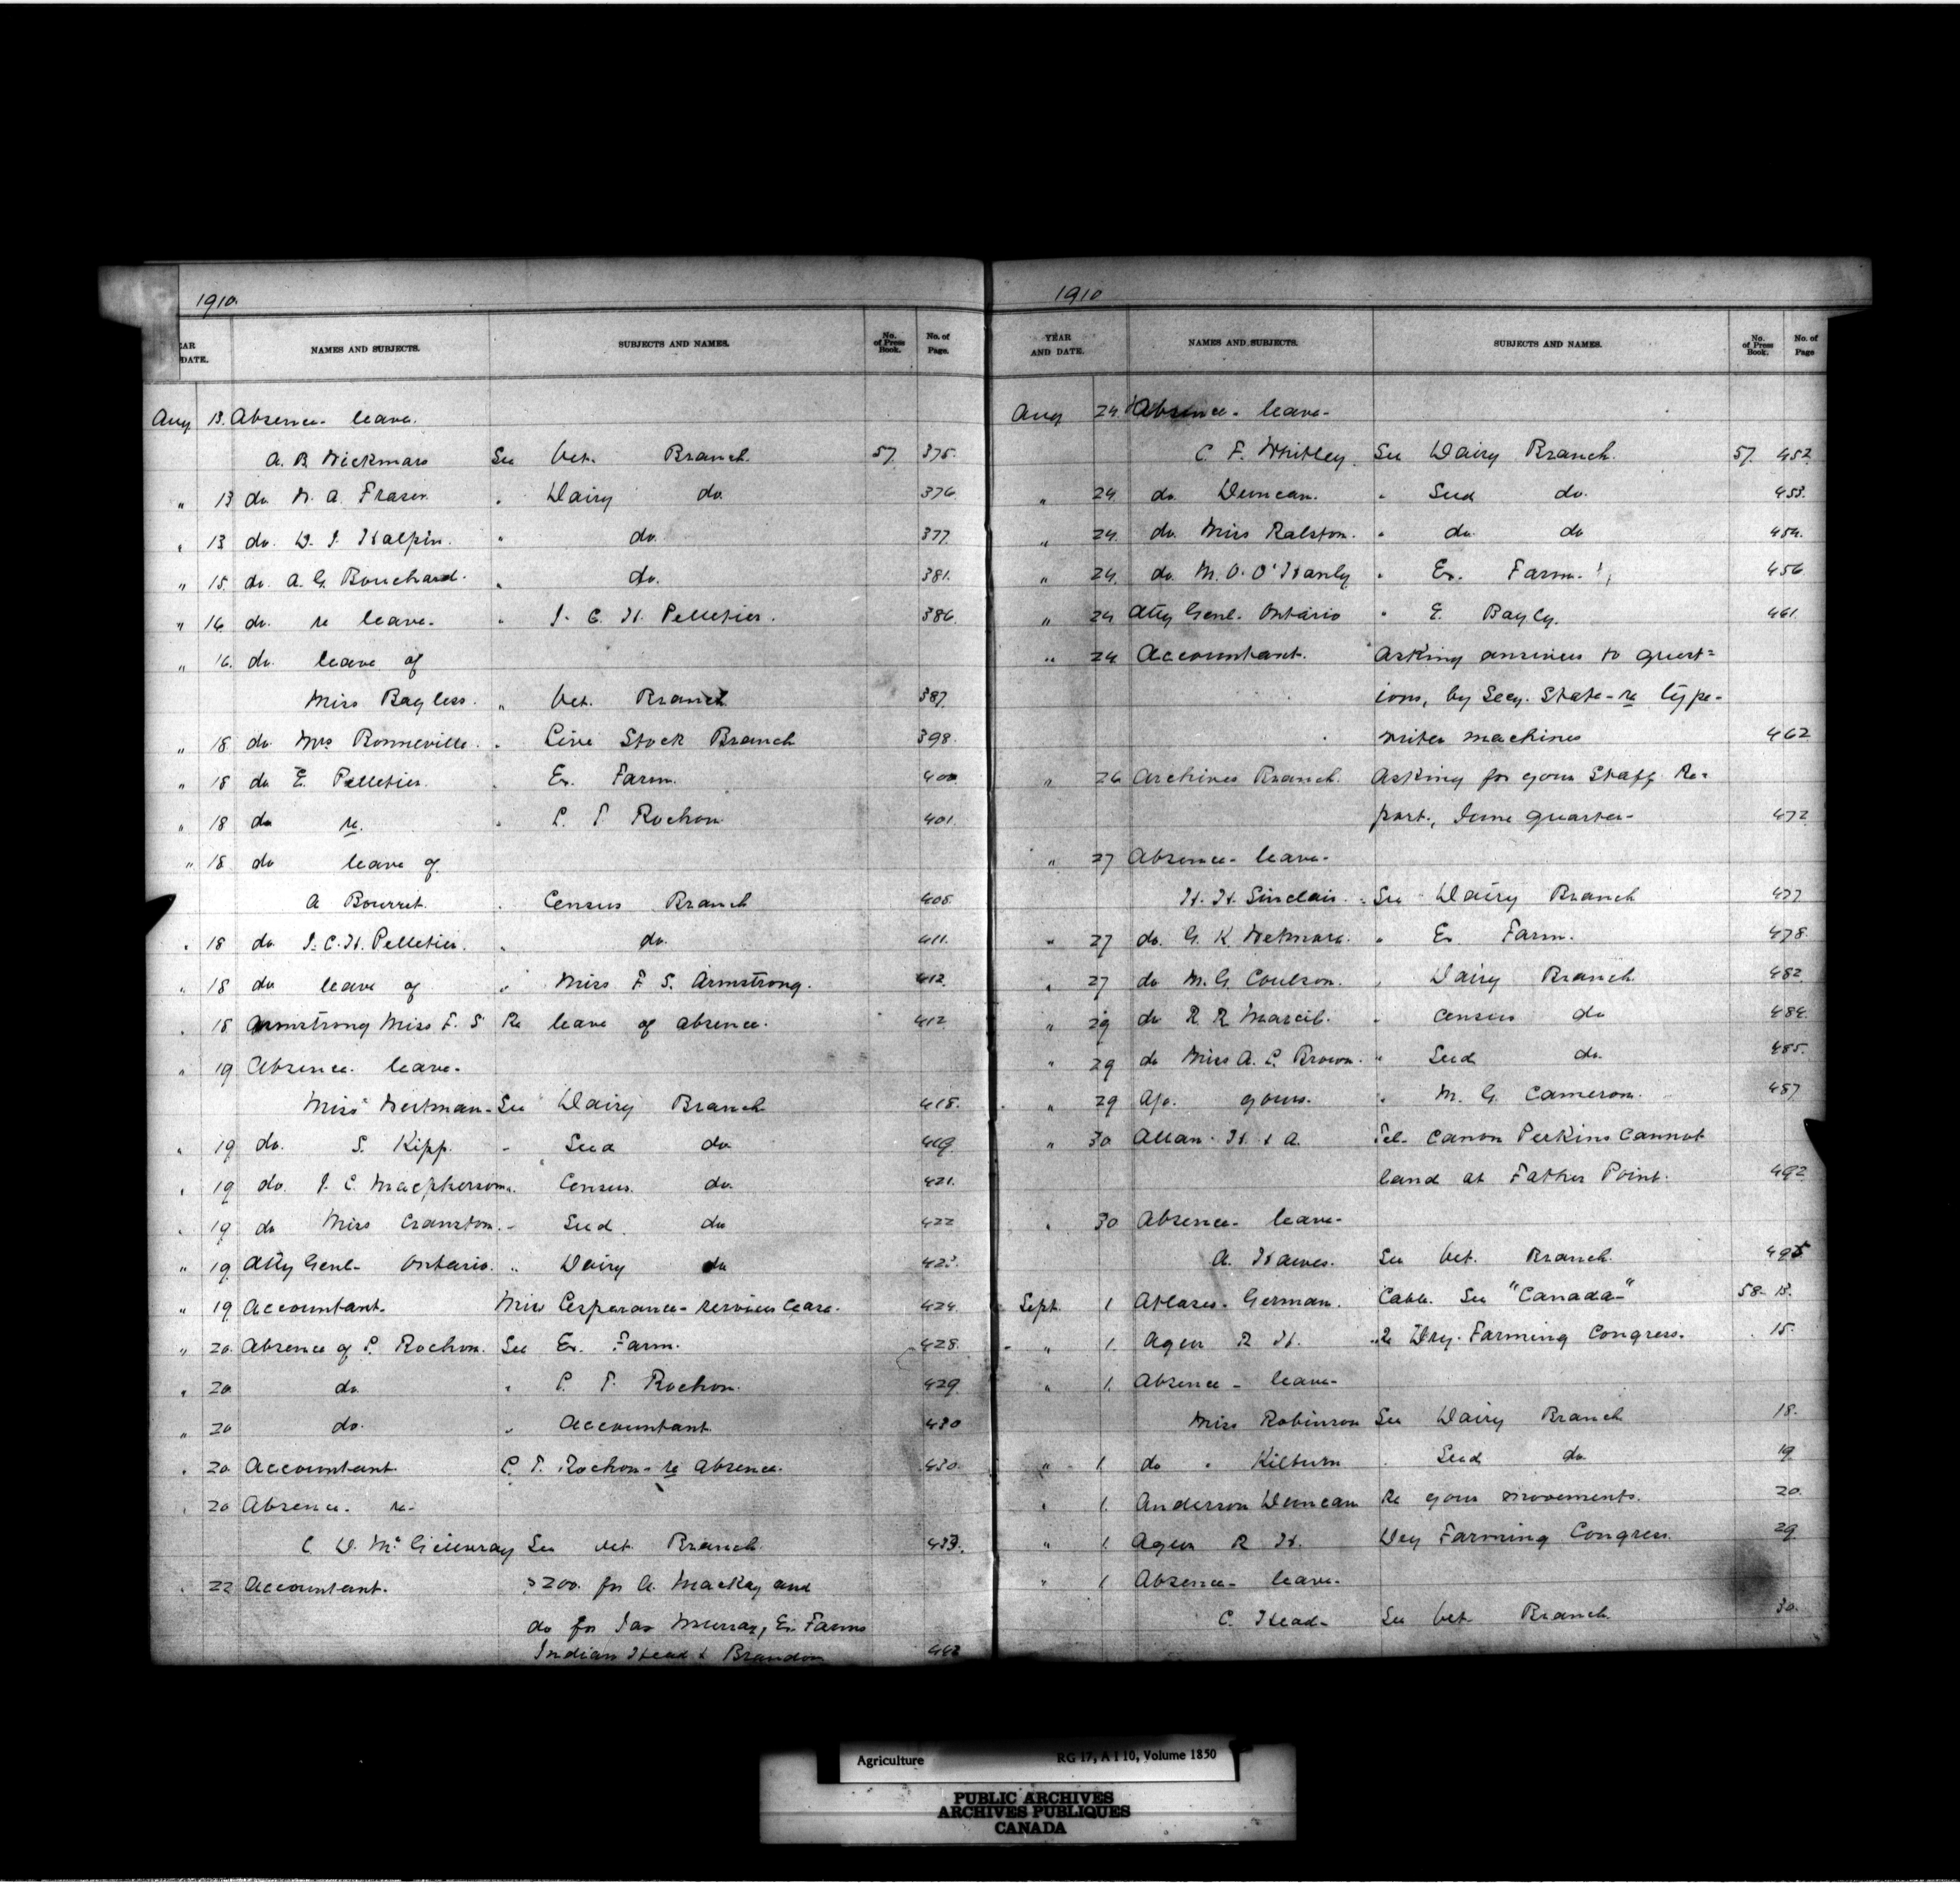 1910.
AR DATE. NAMES AND SUBJECTS. SUBJECTS AND NAMES. No. of Press Book. No. of Page.
Aug 13. Absence- leave.
A. B. Wickmars See Vet. Branch. 57. 375.
" 13 do. W. A. Fraser. " Dairy do. 376.
" 13 do. D. J. Halpin. " do. 377.
" 15. do. A. G. Bouchard. " do. 381.
" 16 do. re leave. " J. C. H. Pelletier. 386.
" 16. do. leave of
Miss Bayless. " Vet. Branch 387.
" 18 do Mrs Bonneville. " Live Stock Branch 398.
" 18 do E. Pelletier. " Ex. Farm. 400
" 18 do re. " P. T. Rochon 401.
" 18 do leave of
A Bourret. " Census Branch 405.
" 18 do J. C. H. Pelletier. " do. 411.
" 18 do leave of " Miss F. S. Armstrong. 412.
" 18 Armstrong Miss F. S Re leave of absence. 412.
" 19 Absence- leave-
Miss Weitman- See Dairy Branch 418.
" 19 do. S. Kipp. - Seed do 419.
" 19 do. J. C. Macpherson. " Census. do. 421.
" 19 do Miss Cranston. - Seed. do 422
" 19. Atty Genl- Ontario. " Dairy do 423.
" 19 Accountant. Miss Lesperance- services Ceare. 424.
" 20. Absence of P. Rochon. See Ex. Farm. 428.
" 20 do " P. T. Rochon. 429.
" 20 do. " Accountant. 430
" 20. Accountant. P. T. Rochon- re absence. 430.
" 20 Absence. re-
C. D. McGillivray See Vet. Branch. 433.
" 22 Accountant. $200. for A. Mackay and
do for Jas Murray, Ex. Farms
Indian Head & Brandon 442
1910
YEAR AND DATE. NAMES AND SUBJECTS. SUBJECTS AND NAMES. No. of Press Book. No. of Page
Aug 24. Absence- leave-
C. F. Whitley. See Dairy Branch. 57. 452.
" 24. do. Duncan. " Seed do. 453.
" 24. do. Miss Ralston. " do. do 454.
" 24. do M. O. O'Hanly " Ex. Farm. 456
" 24 Atty Genl- Ontario " E. Bayly. 461.
" 24 Accountant. Asking answers to quest=
ions, by Secy. State- re type-
writer machines 462
" 26 Archives Branch. Asking for your Staff Re-
port, June quarter- 472
" 27 Absence- leave-
H. H. Sinclair. See Dairy Branch 477
" 27 do. G. K. Wetmore. " Ex Farm. 478.
" 27 do M. G. Coulson. " Dairy Branch 482.
" 29 do R. R Marcil. " Census do 484.
" 29 do Miss A. P. Brown. " Seed do. 485.
" 29 A/c. yours. " M. G. Cameron. 487
" 30 Allan- H. & A. Tel- Canon Perkins cannot
land at Father Point. 492
" 30 Absence- leave-
A. Hawes. See Vet. Branch. 495
Sept. 1 Atlases- German. Cable. See "Canada-" 58- 13.
" 1. Ager R H. re Dry-Farming Congress. 15.
" 1. Absence- leave-
Miss Robinson See Dairy Branch 18.
" 1 do " Kilburn " Seed do. 19
" 1. Anderson Duncan Re your movements. 20.
" 1. Ager R H. Dry Farming Congress. 29
" 1 Absence- leave-
C. Head- See Vet- Branch. 30.
Agriculture RG 17, A I 10, Volume 1850
PUBLIC ARCHIVES
ARCHIVES PUBLIQUES
CANADA